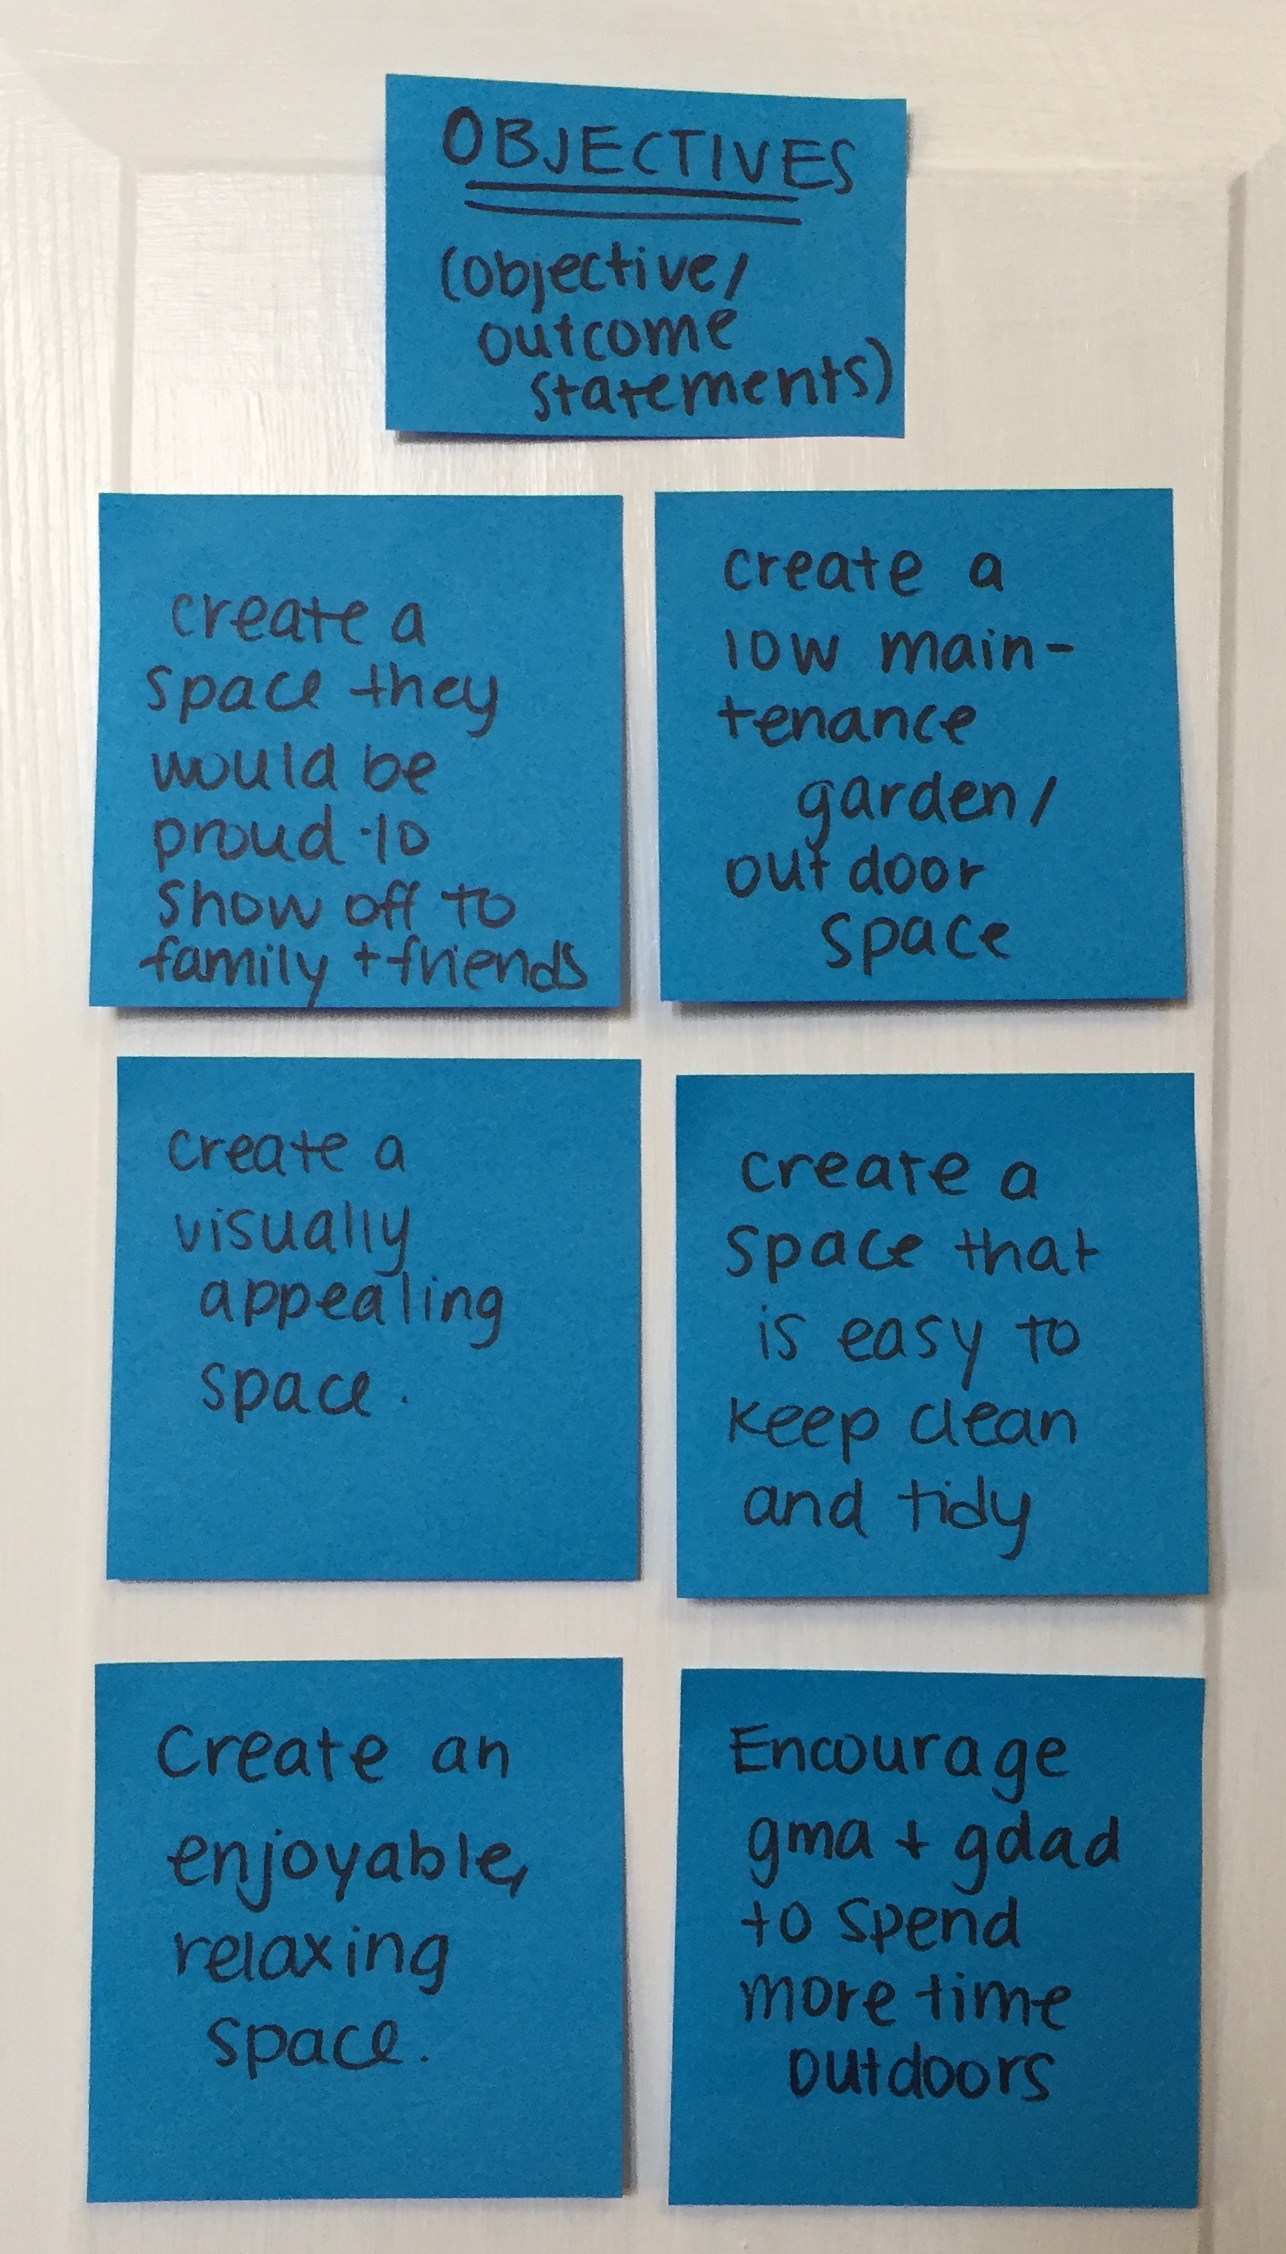 OBJECTIVES
(objective/
outcome
statements)
create a
space they
would be
proud to
show off to
family + friends
create a
low main-
tenance
garden/
outdoor
space
create a
visually
appealing
space.
create a
space that
is easy to
keep clean
and tidy
Create an
enjoyable,
relaxing
space.
Encourage
gma + gdad
to spend
more time
outdoors